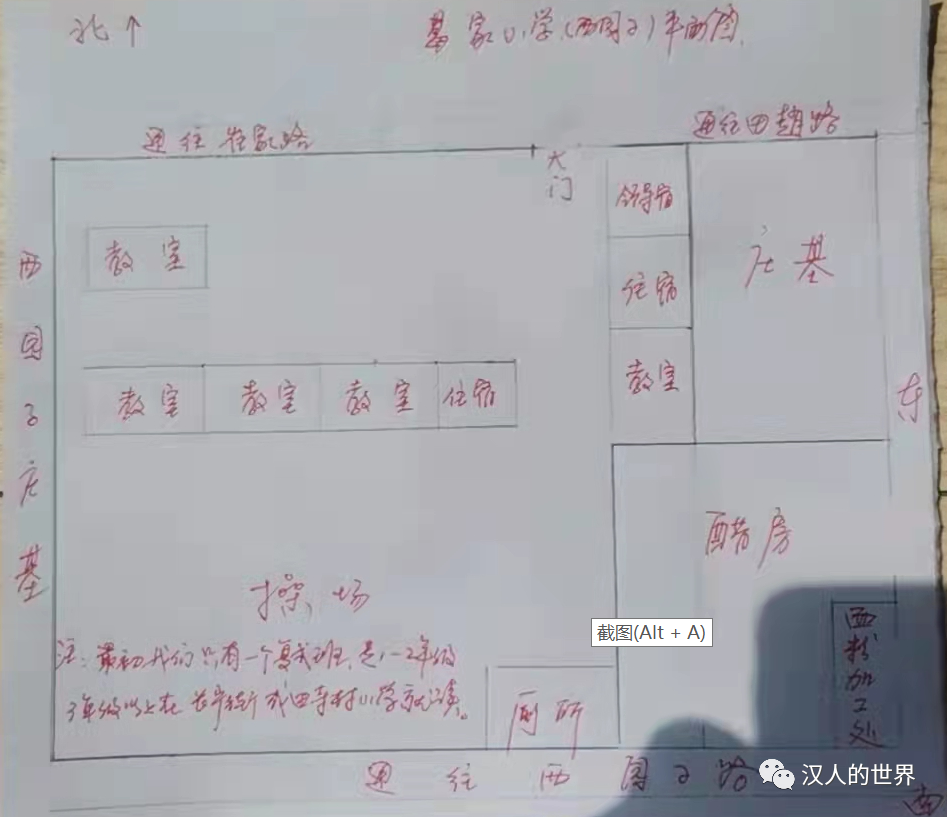 北↑
家小学(西园子)平面图
通往 家路
通往田赵路
大门
领导宿
教室
庄基
住宿
西园子庄基
教室
教室 教室 教室 住宿
东
醋房
操场
截图(Alt + A)
注:最初我们只有一个复式班,是1-2年级
3年级以上在 或田寺村小学就读。
面粉加工处
厕所
通往西园子路
汉人的世界
南